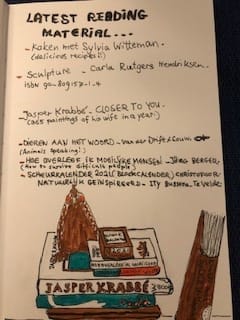 LATEST READING
MATERIAL...
- Koken met Sylvia Witteman.
(delicious recipes!!)
- Sculpture - Carla Rutgers Hendriksen.
ISBN 90-80915
Jasper Krabbé - CLOSER TO YOU.
(365 paintings of his wife in a year!)
- DIEREN AAN HET WOORD - van der Drift &
(Animals speaking!)
- HOE OVERLEEF IK MOEILIJKE MENSEN? - Jörg BERGER
(How to survive difficult people)
- SCHEURKALENDER 2021 (CALENDER) CHRISTOFOOR
NATUURLIJK GEÏNSPIREERD -
JASPER KRABBÉ